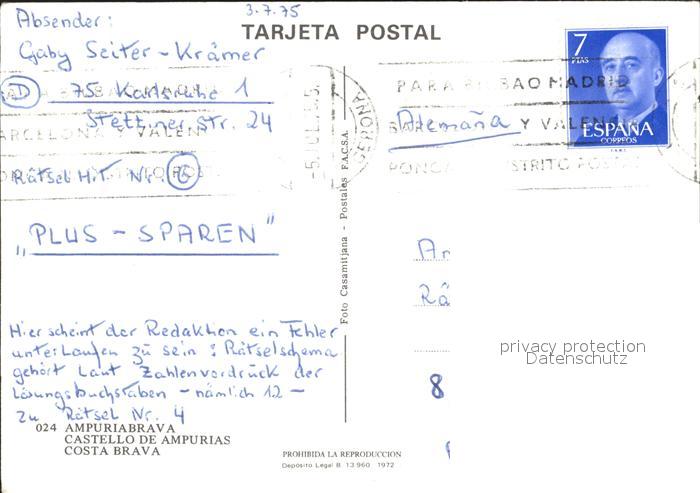 3.7.75
TARJETA POSTAL
Absender:
Gaby Seiter-Krämer
(D) 75 Karlsruhe 1
Stettiner Str. 24
Rätsel H.T. Nr. 6
„PLUS - SPAREN"
Hier scheint der Redaktion ein Fehler
unterlaufen zu sein: Rätselschema
gehört laut Zahlenvordruck der
Lösungsbuchstaben - nämlich 12 -
zu Rätsel Nr. 4
024 AMPURIABRAVA
CASTELLO DE AMPURIAS
COSTA BRAVA
Foto Casamitjana - Postales F.A.C.S.A.
PROHIBIDA LA REPRODUCCION
Depósito Legal B. 13.960 1972
7
PTAS
ESPAÑA
CORREOS
GERONA
PARA BILBAO MADRID
BARCELONA Y VALENCIA
PONGA DISTRITO POSTAL
Alemaña
An
Rä
8
privacy protection
Datenschutz